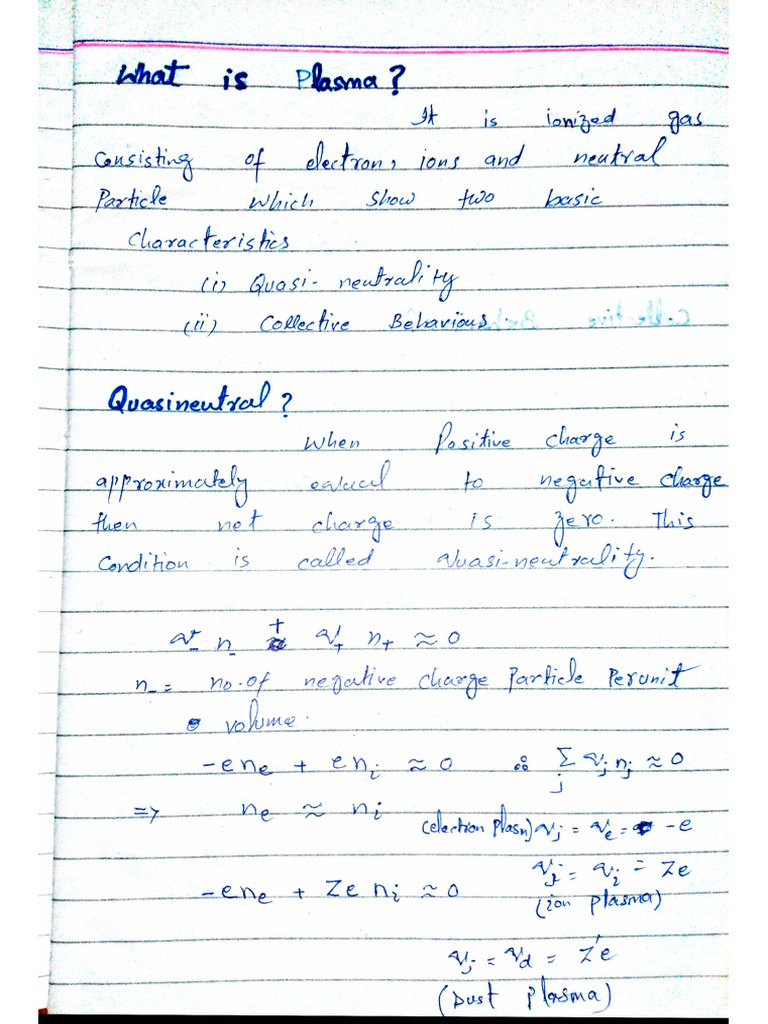 What is Plasma?
It is ionized gas
Consisting of electron, ions and neutral
Particle which show two basic
Characteristics
(i) Quasi-neutrality
(ii) Collective Behavious.
Quasineutral?
When Positive charge is
approximately equal to negative charge
then not charge is zero. This
Condition is called quasi-neutrality.
q₋ n₋ + q₊ n₊ ≈ 0
n₋ = no. of negative charge Particle Per unit
volume.
-enₑ + enᵢ ≈ 0 ∴ Σⱼ qⱼ nⱼ ≈ 0
=> nₑ ≈ nᵢ
(electron Plasm) qⱼ = qₑ = -e
-enₑ + Ze nᵢ ≈ 0 qⱼ = qᵢ = Ze
(ion plasma)
qⱼ = q_d = Z'e
(Dust plasma)